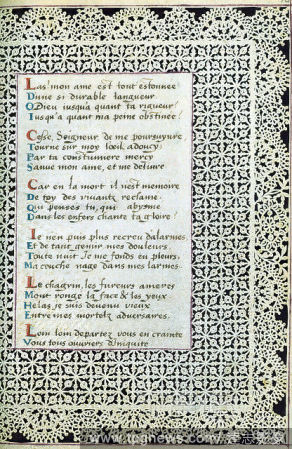 Las! mon ame est tout estonnee
D'une si durable langueur
O Dieu iusqu'a quant ta rigueur
Iusqu'a quant ma peine obstinee?
Cesse, Seigneur, de me poursuyure,
Tourne sur moy l'oeil adoucy
Par ta coustumiere mercy
Sauue mon ame, et me deliure
Car en la mort il n'est memoire
De toy des viuants reclame
Qui penses tu, qui abysme
Dans les enfers chante ta gloire?
Ie n'en puis plus recreu d'alarmes
Et de tant gemir mes douleurs,
Toute nuit Ie me fonds en pleurs,
Ma couche nage dans mes larmes.
Le chagrin, les fureurs ameres
M'ont ronge la face & les yeux
Helas, ie suis deuenu vieux
Entre mes mortelz aduersaires.
Loin loin departez vous en crainte
Vous tous ouuriers d'iniquite